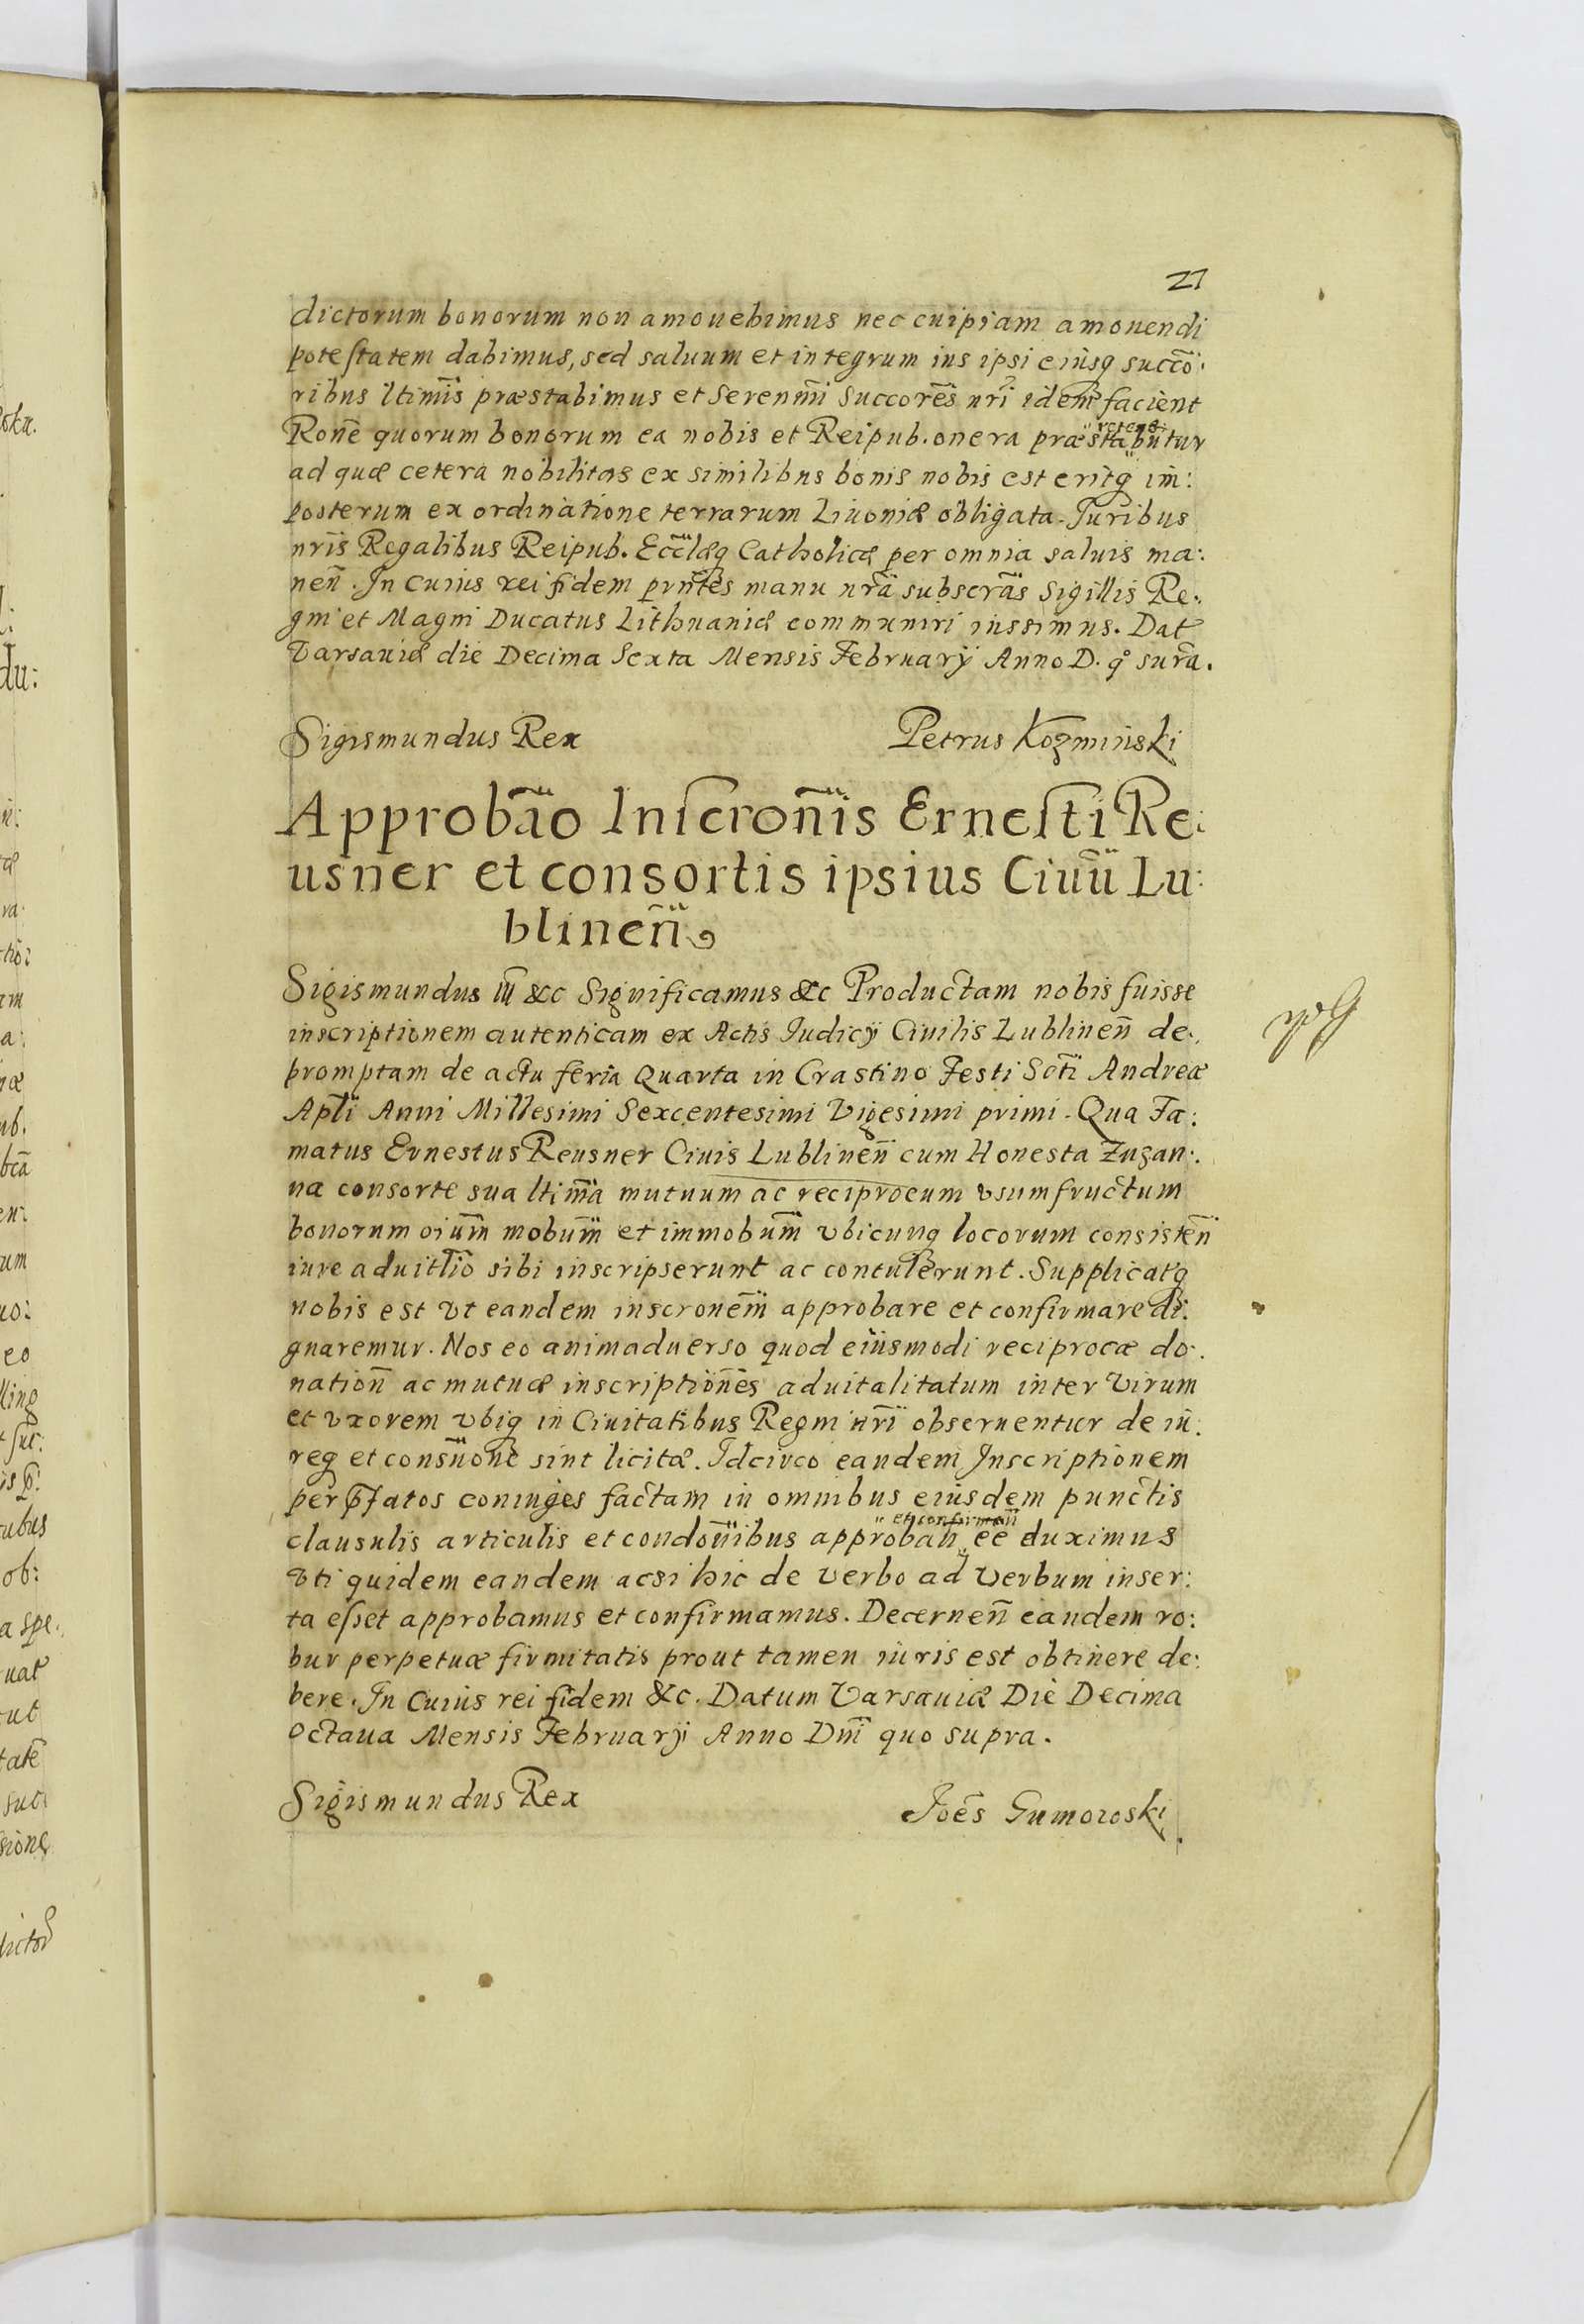 21
dictorum bonorum non amouebimus nec cuipiam amouendi
potestatem dabimus, sed saluum et integrum ius ipsi eiusq succõ:
ribus ltimĩs præstabimus et Serenmĩ Succorẽs nrĩ idem facient
Ronẽ quorum bonorum ea nobis et Reipub. onera præstabuntur
ad quæ cetera nobilitas ex similibus bonis nobis est eritq im:
posterum ex ordinatione terrarum Liuoniæ obligata. Iuribus
nrĩs Regalibus Reipub. Ecclæq Catholicæ per omnia saluis ma:
neñ. In cuius rei fidem prñtes manu nrã subscrãs Sigillis Re:
gni et Magni Ducatus Lithuaniæ communiri iussimus. Dat
Varsauiæ die Decima Sexta Mensis Februarÿ Anno D. qº sura.
Sigismundus Rex Petrus Kozminski
Approbão Inscroñis Ernesti Re:
usner et consortis ipsius Ciuiũ Lu:
blineñ
Sigismundus III &c Significamus &c Productam nobis fuisse
inscriptionem autenticam ex Actis Iudicÿ Ciuilis Lublineñ de:
promptam de actu feria Quarta in Crastino Festi Scti Andreæ
Apli Anni Millesimi Sexcentesimi Vigesimi primi. Qua Fa:
matus Ernestus Reusner Ciuis Lublineñ cum Honesta Zuzan:
na consorte sua ltimã mutuum ac reciprocum vsumfructum
bonorum oiũm mobũm et immobũm vbicunq locorum consisteñ
iure aduitlĩo sibi inscripserunt ac contulerunt. Supplicatq
nobis est vt eandem inscronem approbare et confirmare di:
gnaremur. Nos eo animaduerso quod eiusmodi reciprocæ do:
nationñ ac mutuæ inscriptiones aduitalitatum inter Virum
et vxorem vbiq in Ciuitatibus Regni nrĩ obseruentur de iu:
req et consũone sint licitæ. Idcirco eandem Inscriptionem
per pfatos coniuges factam in omnibus eiusdem punctis
et confirmañ
clausulis articulis et condoñibus approbañ eẽ duximus
Vti quidem eandem acsi hic de verbo ad Verbum inser:
ta esset approbamus et confirmamus. Decerneñ eandem ro:
bur perpetuæ firmitatis prout tamen iuris est obtinere de:
bere. In Cuius rei fidem &c. Datum Varsauiæ Die Decima
Octaua Mensis Februarÿ Anno Dnĩ quo supra.
Sigismundus Rex Joẽs Gumowski